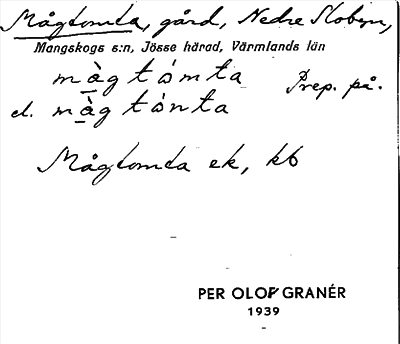 Mågtomta, gård, Nedre Slobyn,
Mangskogs s:n, Jösse härad, Värmlands län
må̀gtómta Prep. på.
el. må̀gtónta
Mågtomta ek, kb
PER OLOF GRANÉR
1939